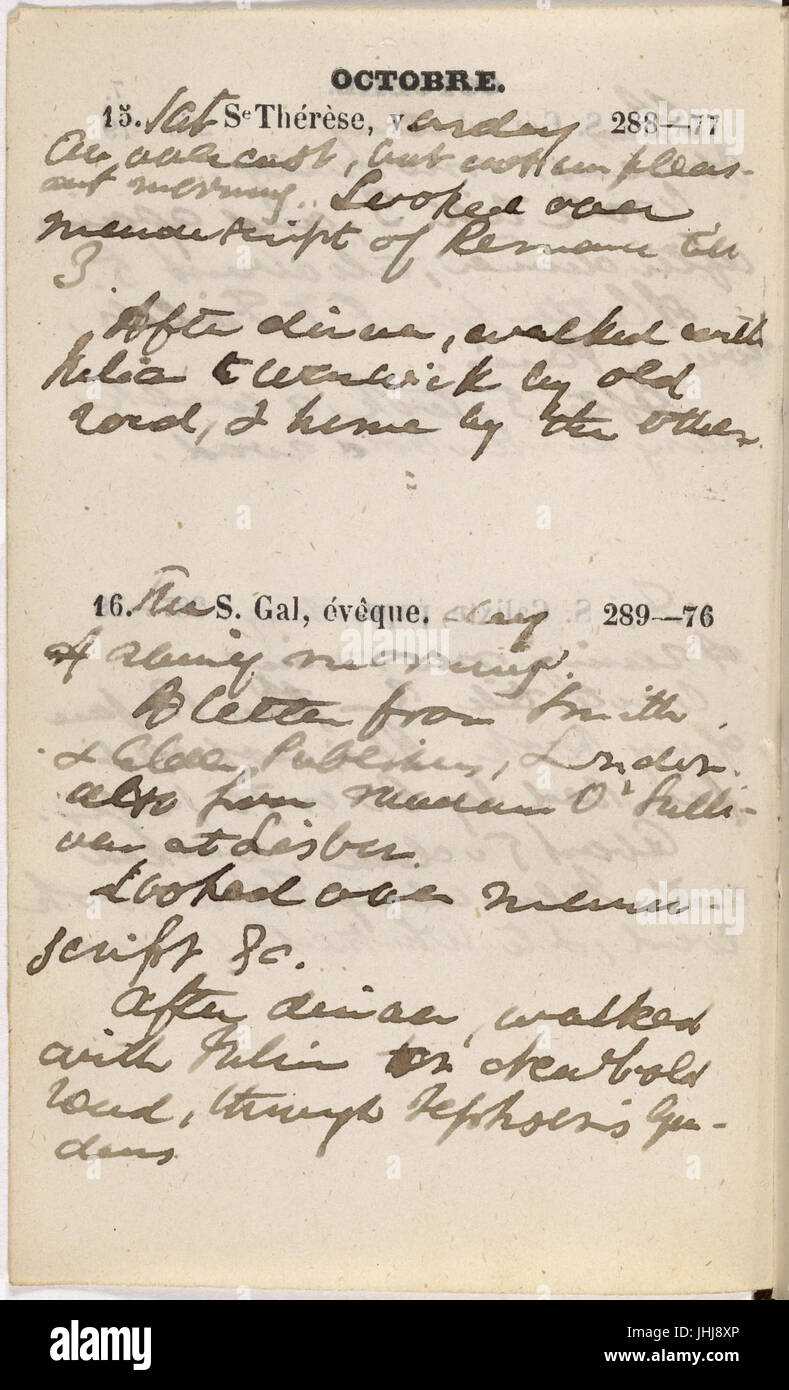 OCTOBRE.
15. Sat Se Thérèse, v urday 288—77
An overcast, but not unpleas-
ant morning. Looked over
manuscript of Romance till
3
After dinner, walked with
Julian to Warwick by old
road, & home by the other.
16. Thu S. Gal, évêque. day 289—76
A rainy morning.
A letter from Smith
& Elder, Publishers, London.
also from Madam O'Sulli-
van at Lisbon.
Looked over manu-
script &c.
After dinner, walked
with Julian on Newbold
road, through Jephson's Gar-
dens
alamy stock photo
JHJ8XP
www.alamy.com